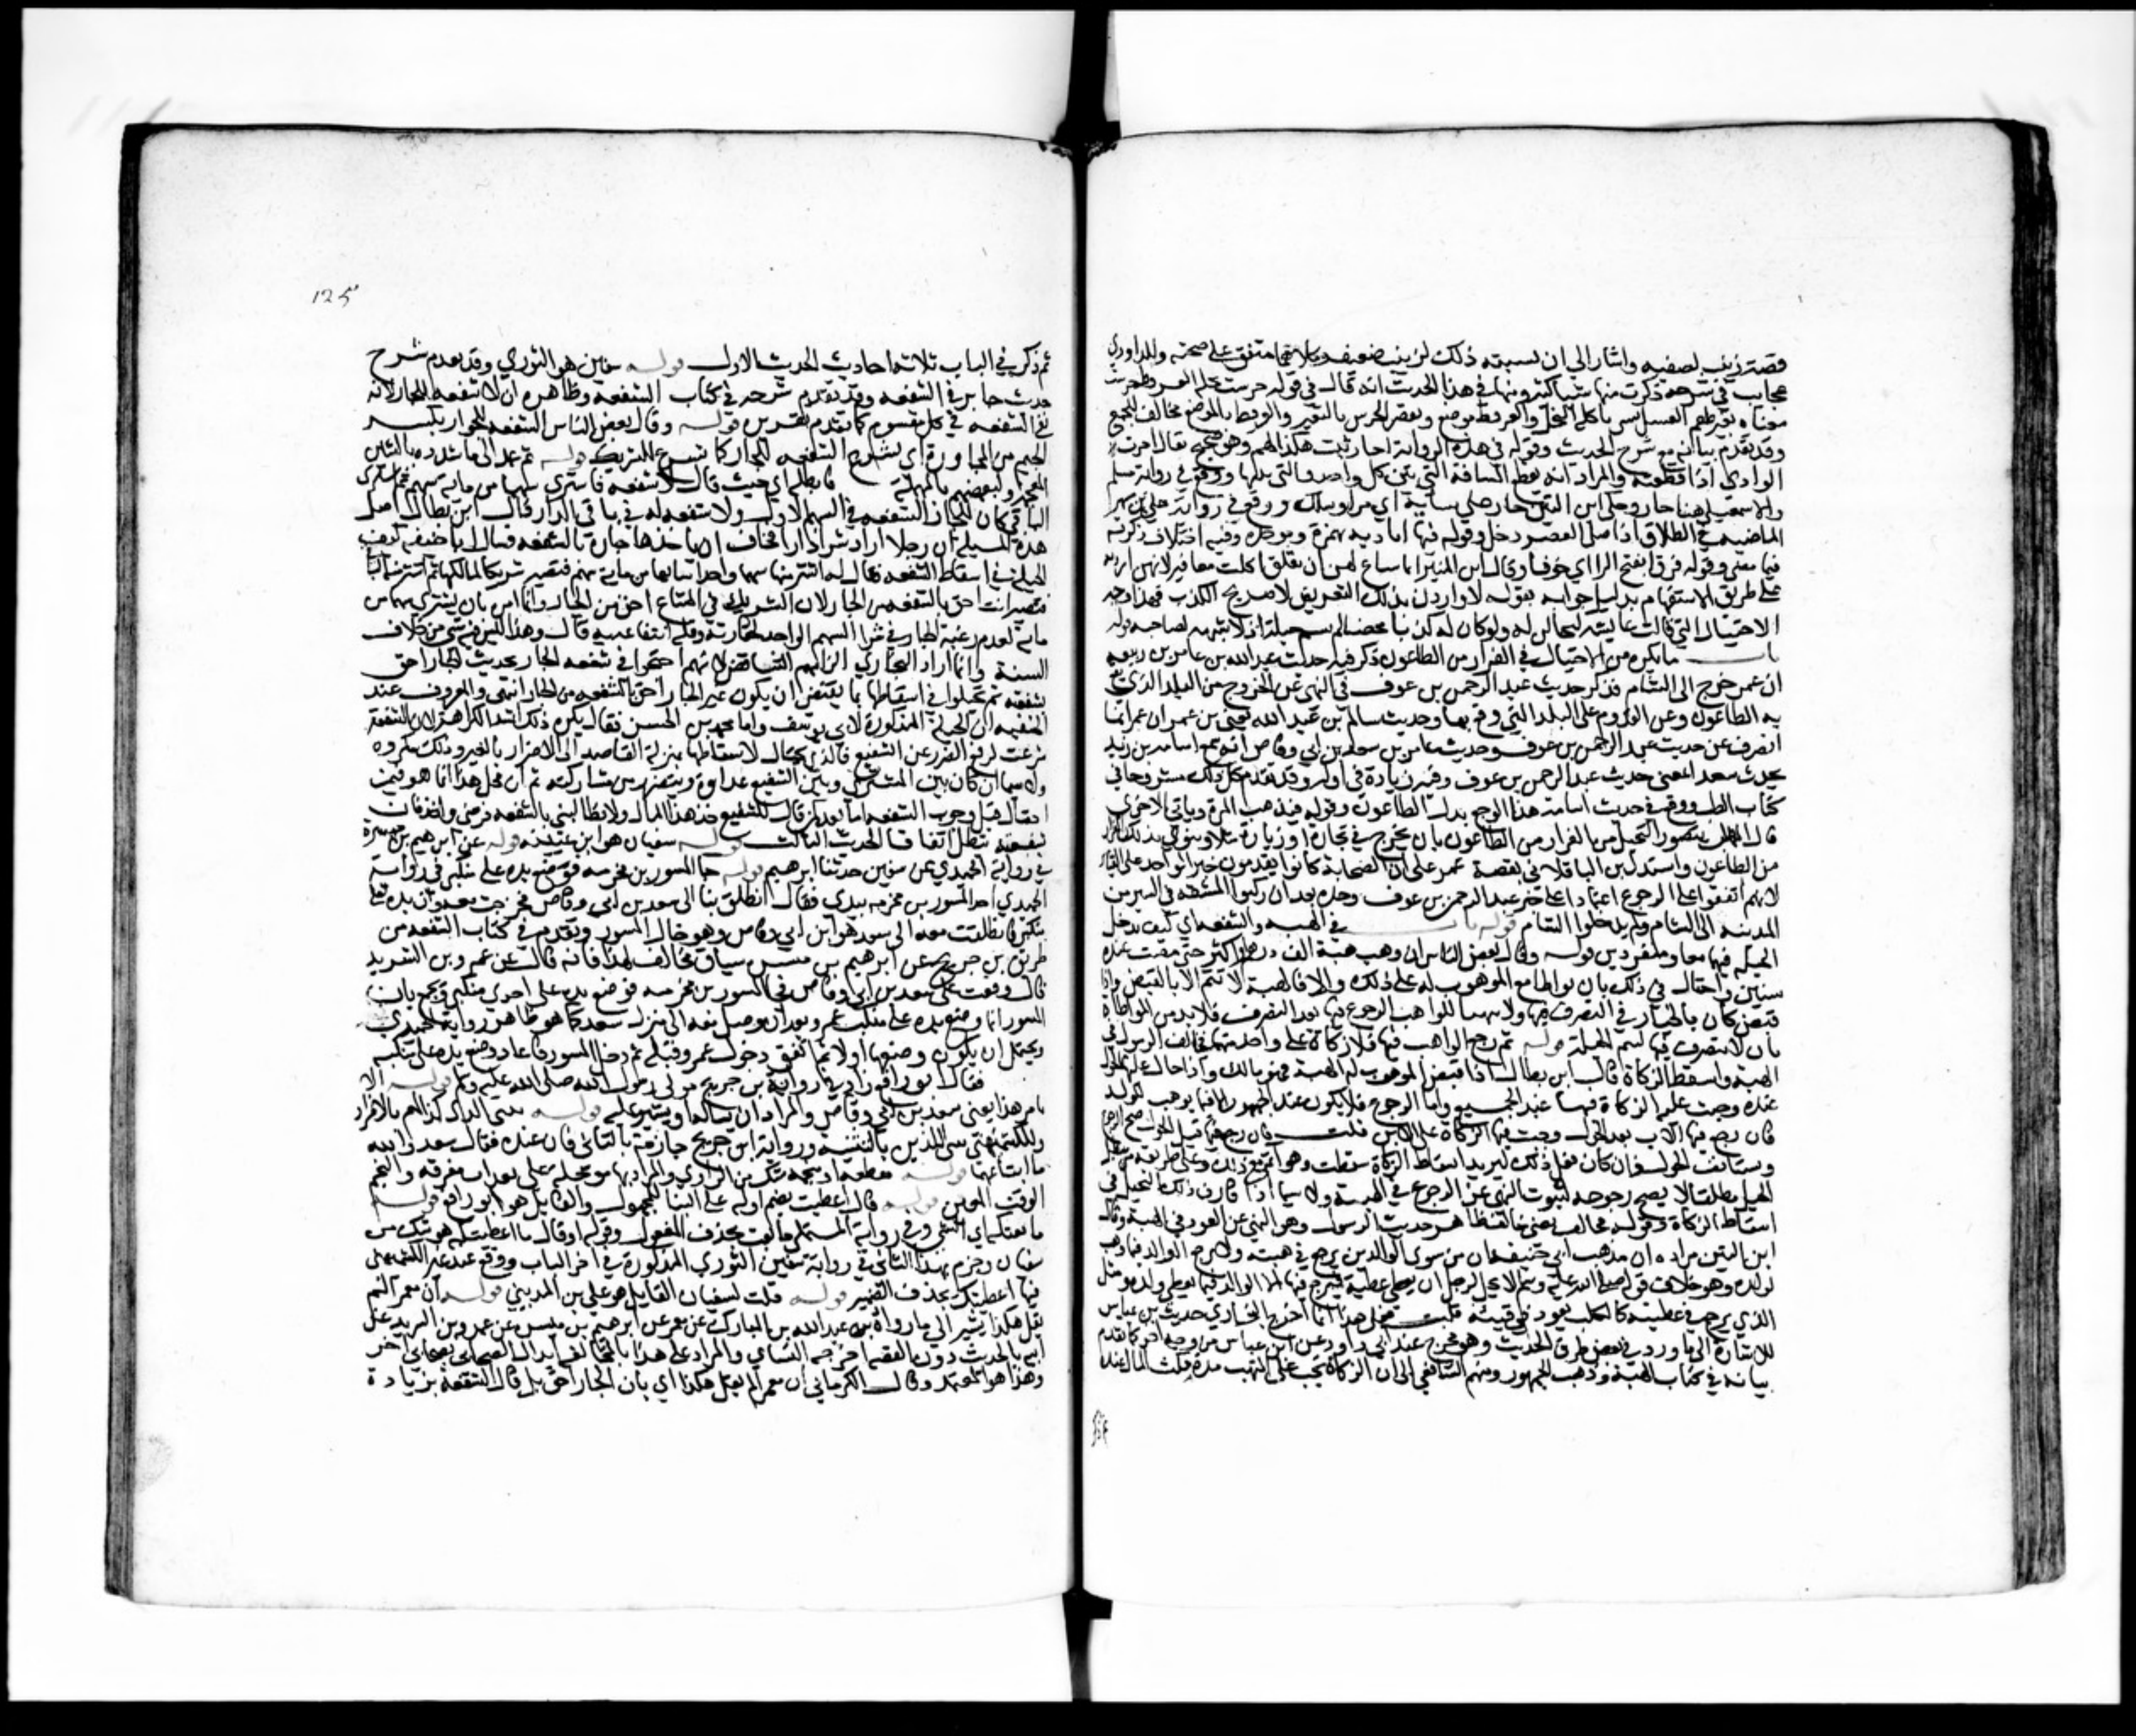 قصة زينب لصفيه واشار الى ان نسبته ذلك لزينب ضعيف
في شرحه ذكرت منها شيا كثيرا ومنها في هذا الحديث انه قال في قوله جرست نحله العرفط جرست
معناه تغير طعم العسل لشي ياكله النحل والعرفط موضع وتفسير الجرس بالتغير والعرفط بالموضع مخالف للجميع
وقد تقدم بيانه مع شرح الحديث وقوله في هذه الرواية اجاز ثبت هكذا لهم وهو صحيح يقال اجزت
الوادي اذا قطعته والمراد انه يقطع المسافة التي بين كل واحدة والتي تليها ووقع في رواية مسلم
الماضيه في الطلاق اذا صلى العصر دخل وقوله فيها اباديه بهمزة وموحده وفيه اختلاف ذكرته
فيما مضى وقوله فرقا بفتح الرا اي خوفا وقال ابن المنير انما ساغ لهن ان يقلن اكلت مغافير لانهن اوردنه
على طريق الاستفهام بدليل جوابه بقوله لا واردن بذلك التعريض لا صريح الكذب فهذا وجه
الاحتيال التي قالت عايشة لتحتالن له ولو كان كذبا محضا لم يسم حيلة اذ لا شبهه لصاحبه قوله
باب ما يكره من الاحتيال في الفرار من الطاعون ذكر فيه حديث عبد الله بن عامر بن ربيعه
ان عمر خرج الى الشام فذكر حديث عبد الرحمن بن عوف في النهي عن الخروج من البلد الذي يقع
به الطاعون وعن القدوم على البلد التي وقع بها وحديث سالم بن عبد الله يعني بن عمر ان عمر انما
انصرف عن حديث عبد الرحمن بن عوف وحديث عامر بن سعد بن ابي وقاص انه سمع اسامه بن زيد
يحدث سعدا بمعنى حديث عبد الرحمن بن عوف وفيه زيادة في اوله وقد تقدم كل ذلك مشروحا في
كتاب الطب ووقع في حديث اسامه هذا الوجع بدل الطاعون وقوله فيذهب المرة وياتي الاخرى
قال المهلب يتصور التحيل في الفرار من الطاعون بان يخرج في تجارة او زيارة مثلا وينوي بذلك الفرار
من الطاعون واستدل بن الباقلاني بقصة عمر على ان الصحابة كانوا يقدمون خبر الواحد على القياس
لانهم اتفقوا على الرجوع اعتمادا على خبر عبد الرحمن بن عوف وحده بعد ان ركبوا المشقه في السير من
المدينه الى الشام ولم يدخلوا الشام قوله باب في الهبه والشفعه اي كيف تدخل
الحيله فيهما معا ومنفردين قوله وقال بعض الناس ان وهب هبة الف درهم او اكثر حتى مكث عنده
سنين واحتال في ذلك بان تواطا مع الموهوب له على ذلك والا فالهبة لا تتم الا بالقبض واذا
قبض كان بالخيار في التصرف فيها ولا يتهيا للواهب الرجوع فيها بعد التصرف فلا بد من المواطاة
بان لا يتصرف فيها لتتم الحيلة قوله ثم رجع الواهب فيها فلا زكاة على واحد منهما فخالف الرسول في
الهبة واسقط الزكاة قال ابن بطال اذا قبض الموهوب له الهبة فهو مالك واذا حال عليها الحول
عنده وجبت عليه الزكاة فيها عند الجميع واما الرجوع فلا يكون عند الجمهور الا فيما يوهب للولد
فان رجع فيها الاب بعد الحول وجبت فيها الزكاة على الابن قلت فان رجع فيها قبل الحول صح الرجوع
ويستانف الحول فان كان فعل ذلك ليريد اسقاط الزكاة سقطت وهو اثم مع ذلك وعلى طريقة من يبطل
الحيل مطلقا لا يصح رجوعه لثبوت النهي عن الرجوع في الهبة ولا سيما اذا قارن ذلك التحيل في
اسقاط الزكاة وقوله فخالف يعني خالف ظاهر حديث الرسول وهو النهي عن العود في الهبة وقال
ابن التين مراده ان مذهب ابي حنيفه ان من سوى الوالدين يرجع في هبته ولا يرجع الوالد فيما وهب
لولده وهو خلاف قوله صلى الله عليه وسلم لا يحل لرجل ان يعطي عطية فيرجع فيها الا الوالد فيما يعطي ولده ومثل
الذي يرجع في عطيته كالكلب يعود في قيئه قلت فعلى هذا انما اخرج البخاري حديث بن عباس
للاشارة الى ما ورد في بعض طرق الحديث وهو مخرج عند ابي داود عن ابن عباس من وجه اخر كما تقدم
بيانه في كتاب الهبة وذهب الجمهور ومنهم الشافعي الى ان الزكاة تجب على المتهب مدة مكث المال عنده
125
ثم ذكر في الباب ثلاثه احاديث الحديث الاول قوله سفين هو الثوري وقد تقدم شرح
حديث جابر في الشفعه وقد تقدم شرحه في كتاب الشفعه وظاهره ان لا شفعه للجار لانه
نفى الشفعه في كل مقسوم كما تقدم تقريره قوله وقال بعض الناس الشفعه للجوار بكسر
الجيم من المجاورة اي تشرع الشفعه للجار كما تشرع للشريك قوله ثم عمد الى ما شدده بالشين
المعجمه ولبعضهم بالمهملة فابطله اي حيث قال لا شفعة فاشترى سهما من مايه سهم ثم اشترى
الباقي كان للجار الشفعه في السهم الاول ولا شفعه له في باقي الدار قال ابن بطال اصل
هذه المسيلة ان رجلا اراد شرا دار فخاف ان ياخذها جاره بالشفعه فسال ابا حنيفه كيف
الحيلة في اسقاط الشفعه فقال له اشتر منها سهما واحدا شايعا من مايه سهم فتصير شريكا لمالكها ثم اشتر منه الباقي
فتصير انت احق بالشفعه من الجار لان الشريك في المشاع احق من الجار وانما امره بان يشتري سهما من
مايه لعدم رغبة الجار في شرا السهم الواحد لحقارته وقلة انتفاعه به قال وهذا ليس فيه شي من خلاف
السنة وانما اراد البخاري الزامهم التناقض لانهم احتجوا في شفعه الجار بحديث الجار احق
بشفعته ثم تحيلوا في اسقاطها بما يقتضي ان يكون غير الجار احق بالشفعه من الجار انتهى والمعروف عند
الحنفيه ان الحيلة المذكورة لابي يوسف واما محمد بن الحسن فقال يكره ذلك اشد الكراهة لان الشفعة
شرعت لدفع الضرر عن الشفيع فالذي يحتال لاسقاطها بمنزلة القاصد الى الاضرار بالغير وذلك مكروه
ولا سيما ان كان بين المشتري وبين الشفيع عداوة ويتضرر من مشاركته ثم ان محل هذا انما هو فيمن
احتال قبل وجوب الشفعه اما بعده كمن قال للشفيع خذ هذا المال ولا تطالبني بالشفعه فرضي واخذ فان
شفعته تبطل اتفاقا الحديث الثالث قوله سفيان هو ابن عيينه قوله عن ابرهيم بن ميسرة
في رواية الحميدي عن سفين حدثنا ابرهيم قوله جا المسور بن مخرمه فوضع يده على منكبي في رواية
الحميدي اخذ المسور بن مخرمه بيدي فقال انطلق بنا الى سعد بن ابي وقاص فخرجت معه وان يده لعلى
منكبي فانطلقت معه الى سعد هو ابن ابي وقاص وهو خال المسور وتقدم في كتاب الشفعه من
طريق بن جريج عن ابرهيم بن ميسره سياق مخالف لهذا فانه قال عن عمرو بن الشريد
قال وقفت على سعد بن ابي وقاص فجا المسور بن مخرمه فوضع يده على احدى منكبي ويجمع بان
المسور انما وضع يده على منكب عمرو بعد ان وصل معه الى منزل سعد كما هو ظاهر رواية الحميدي
ويحتمل ان يكون وضعها اولا ثم اتفق دخول عمرو قبله ثم دخل المسور فاعاد وضع يده على منكبه
فقال ابو رافع زاد في رواية بن جريج مولى رسول الله صلى الله عليه وسلم قوله الا
تامر هذا يعني سعد بن ابي وقاص والمراد ان يساله او يشير عليه قوله بيتي الذي كذا لهم بالافراد
وللكشميهني بيتي اللذين بالتثنية ورواية ابن جريج جازمة بالثاني فان عنده فقال سعد والله
ما ابتاعهما قوله مقطعه او منجمه شك من الراوي والمراد بها موجله على نقدات مفرقه والنجم
الوقت المعين قوله قال اعطيت بضم اوله على البنا للمجهول والقايل هو ابو رافع قوله
ما بعتكه اي الشي وفي رواية المستملي ما بعت بحذف المفعول وقوله او قال ما اعطيتكه هو شك من
سفيان وجزم بهذا الثاني في رواية سفين الثوري المذكورة في اخر الباب ووقع عند غير الكشميهني
فيها اعطيتك بحذف الضمير قوله قلت لسفيان القايل هو علي بن المديني قوله ان معمرا لم
يقل هكذا يشير الى ما رواه عبد الله بن المبارك عن معمر عن ابرهيم بن ميسره عن عمرو بن الشريد عن
ابيه بالحديث دون القصه اخرجه النسائي والمراد على هذا بالمخالفه ابدال الصحابي بصحابي اخر
وهذا هو المعتمد وقال الكرماني ان معمرا لم يقل هكذا اي بان الجار احق بل قال الشفعة بزيادة